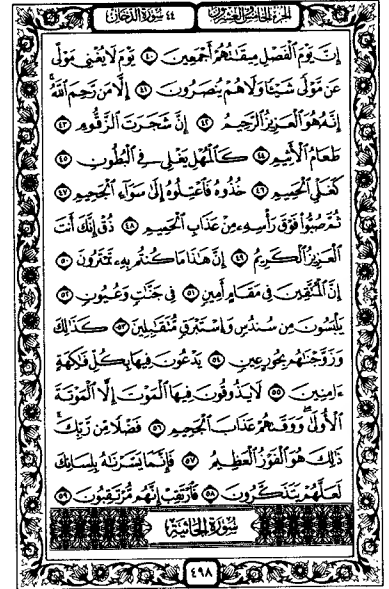 الجزء الخامس والعشرون ٤٤ سورة الدخان
إِنَّ يَوْمَ ٱلْفَصْلِ مِيقَٰتُهُمْ أَجْمَعِينَ ٤٠ يَوْمَ لَا يُغْنِى مَوْلًى
عَن مَّوْلًى شَيْـًٔا وَلَا هُمْ يُنصَرُونَ ٤١ إِلَّا مَن رَّحِمَ ٱللَّهُ ۚ
إِنَّهُۥ هُوَ ٱلْعَزِيزُ ٱلرَّحِيمُ ٤٢ إِنَّ شَجَرَتَ ٱلزَّقُّومِ ٤٣
طَعَامُ ٱلْأَثِيمِ ٤٤ كَٱلْمُهْلِ يَغْلِى فِى ٱلْبُطُونِ ٤٥
كَغَلْىِ ٱلْحَمِيمِ ٤٦ خُذُوهُ فَٱعْتِلُوهُ إِلَىٰ سَوَآءِ ٱلْجَحِيمِ ٤٧
ثُمَّ صُبُّوا۟ فَوْقَ رَأْسِهِۦ مِنْ عَذَابِ ٱلْحَمِيمِ ٤٨ ذُقْ إِنَّكَ أَنتَ
ٱلْعَزِيزُ ٱلْكَرِيمُ ٤٩ إِنَّ هَٰذَا مَا كُنتُم بِهِۦ تَمْتَرُونَ ٥٠
إِنَّ ٱلْمُتَّقِينَ فِى مَقَامٍ أَمِينٍ ٥١ فِى جَنَّٰتٍ وَعُيُونٍ ٥٢
يَلْبَسُونَ مِن سُندُسٍ وَإِسْتَبْرَقٍ مُّتَقَٰبِلِينَ ٥٣ كَذَٰلِكَ
وَزَوَّجْنَٰهُم بِحُورٍ عِينٍ ٥٤ يَدْعُونَ فِيهَا بِكُلِّ فَٰكِهَةٍ
ءَامِنِينَ ٥٥ لَا يَذُوقُونَ فِيهَا ٱلْمَوْتَ إِلَّا ٱلْمَوْتَةَ
ٱلْأُولَىٰ ۖ وَوَقَىٰهُمْ عَذَابَ ٱلْجَحِيمِ ٥٦ فَضْلًا مِّن رَّبِّكَ ۚ
ذَٰلِكَ هُوَ ٱلْفَوْزُ ٱلْعَظِيمُ ٥٧ فَإِنَّمَا يَسَّرْنَٰهُ بِلِسَانِكَ
لَعَلَّهُمْ يَتَذَكَّرُونَ ٥٨ فَٱرْتَقِبْ إِنَّهُم مُّرْتَقِبُونَ ٥٩
سُورَةُ الجَاثِيَةِ
٤٩٨